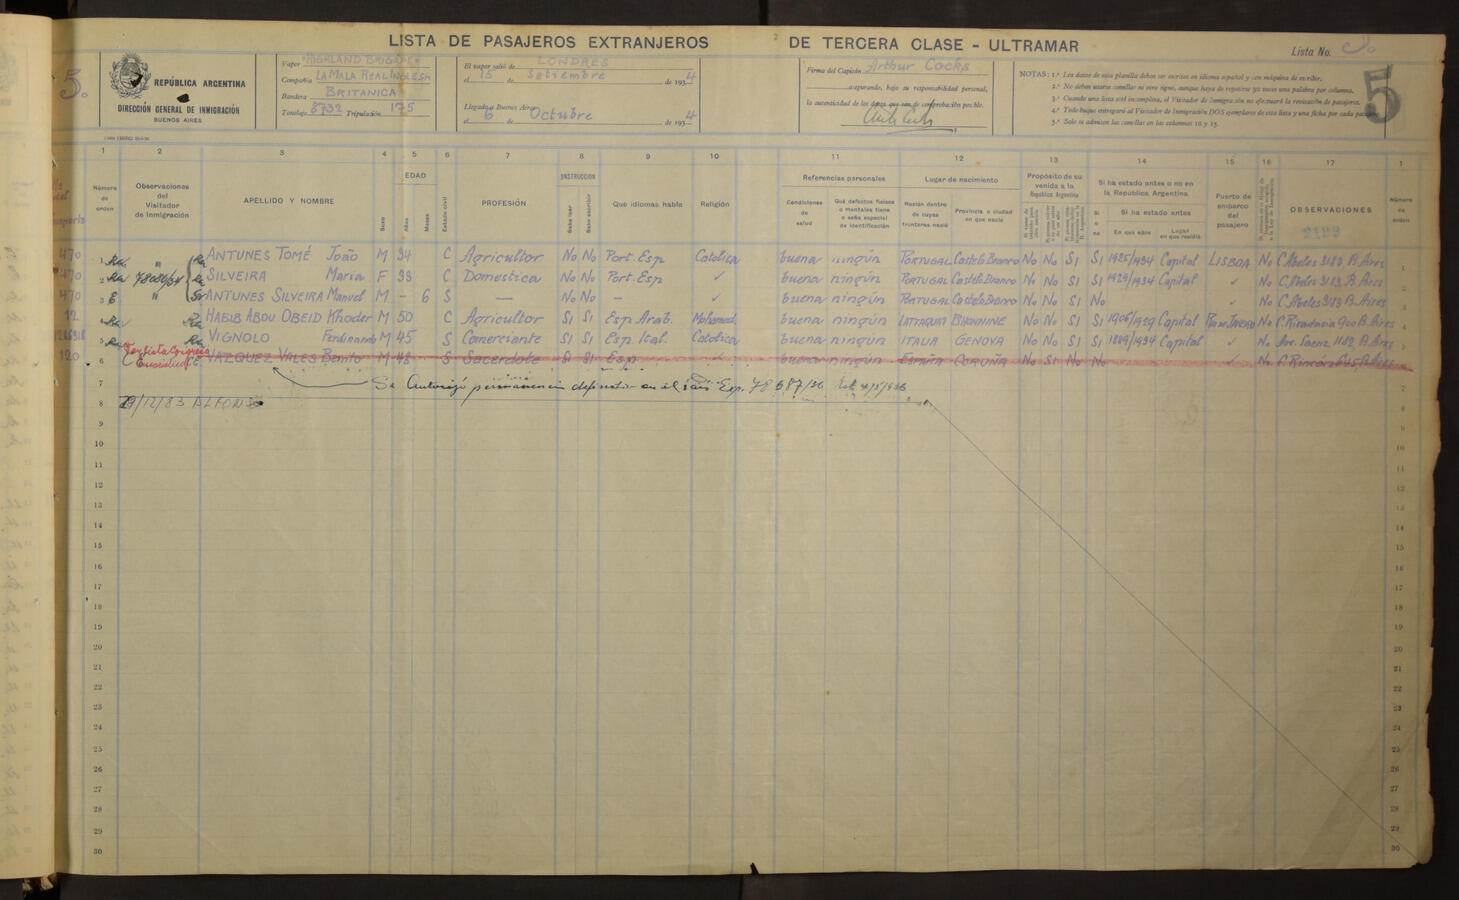 LISTA DE PASAJEROS EXTRANJEROS DE TERCERA CLASE - ULTRAMAR
Lista No. 5.
5.
5
REPÚBLICA ARGENTINA
DIRECCIÓN GENERAL DE INMIGRACIÓN
BUENOS AIRES
Vapor "HIGHLAND BRIGADE"
Compañía LA MALA REAL INGLESA
Bandera BRITANICA
Tonelaje 8732 Tripulación 175
El vapor salió de LONDRES
el 15 de Setiembre de 1934
Llegado a Buenos Aires
el 6 de Octubre de 1934
Firma del Capitán Arthur Cocks
asegurando, bajo su responsabilidad personal,
la autenticidad de los datos que son de comprobación posible.
NOTAS: 1.ª Los datos de esta planilla deben ser escritos en idioma español y con máquina de escribir.
2.ª No deben usarse comillas ni otro signo, aunque haya de repetirse 30 veces una palabra por columna.
3.ª Cuando una lista esté incompleta, el Visitador de Inmigración no efectuará la revisación de pasajeros.
4.ª Todo buque entregará al Visitador de Inmigración DOS ejemplares de esta lista y una ficha por cada pasajero.
5.ª Solo se admiten las comillas en las columnas 10 y 15.
1 2 3 4 5 6 7 8 9 10 11 12 13 14 15 16 17 1
Número de orden
Observaciones del Visitador de Inmigración
APELLIDO Y NOMBRE
Sexo
EDAD
Años
Meses
Estado civil
PROFESIÓN
INSTRUCCION
Sabe leer
Sabe escribir
Qué idiomas habla
Religión
Referencias personales
Condiciones de salud
Qué defectos físicos o mentales tiene o seña especial de identificación
Lugar de nacimiento
Nación dentro de cuyas fronteras nació
Provincia o ciudad en que nació
Propósito de su venida a la República Argentina
Si ha estado antes o no en la República Argentina
Si o no
Si ha estado antes
En qué años
Lugar en que residió
Puerto de embarco del pasajero
OBSERVACIONES
2122
Número de orden
470 1 ANTUNES TOMÉ João M 34 C Agricultor No No Port. Esp Catolica buena ningún PORTUGAL Castelo Branco No No SI SI 1925/1934 Capital LISBOA No C. Abeles 3183 B. Aires 1
470 2 78086/34 SILVEIRA Maria F 33 C Domestica No No Port. Esp ✓ buena ningún PORTUGAL Castelo Branco No No SI SI 1929/1934 Capital ✓ No C. Abeles 3183 B. Aires
470 3 E " ANTUNES SILVEIRA Manuel M - 6 S — No No - ✓ buena ningún PORTUGAL Castelo Branco No No SI No ✓ No C. Abeles 3183 B. Aires
12 HABIB ABOU OBEID Khoder M 50 C Agricultor SI SI Esp Arab. Mohamed. buena ningún LATTAQUIA BHONNINE No No SI SI 1906/1929 Capital No C. Rivadavia 900 B. Aires
VIGNOLO Ferdinando M 45 S Comerciante SI SI Esp Ital. Catolica buena ningún ITALIA GENOVA No No SI SI 1889/1934 Capital ✓ No Ave. Saenz 1182 B. Aires
120 6 VAZQUEZ VALES Benito M 48 S Sacerdote SI SI Esp ✓ buena ningún ESPAÑA CORUÑA No SI No No ✓ No C. Rincón 645 B. Aires
7 Se Autorizó permanencia definitiva en el país Exp. 78687/36 7
8 29/12/83 ALFONSO 8
9 9
10 10
11 11
12 12
13 13
14 14
15 15
16 16
17 17
18 18
19 19
20 20
21 21
22 22
23 23
24 24
25 25
26 26
27 27
28 28
29 29
30 30